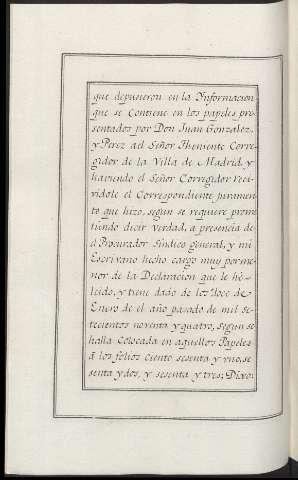 que depusieron en la Ynformacion
que se Contiene en los papeles pre
sentados por Don Juan Gonzalez,
y Perez ael Señor Theniente Corre
gidor de la Villa de Madrid, y
haviendo el Señor Corregidor reci
vidole el Correspondiente juramen
to que hizo, segun se requiere prome
tiendo decir verdad, a presencia de
el Procurador Sindico general, y mi
Escrivano hecho cargo muy porme
nor de la Declaracion que le hé
leido, y tiene dado de los doce de
Enero de el año pasado de mil se
tecientos noventa y quatro, segun se
halla Colocada en aquellos Papeles
á los folios Ciento sesenta y vno, se
senta y dos, y sesenta y tres; Dixo: